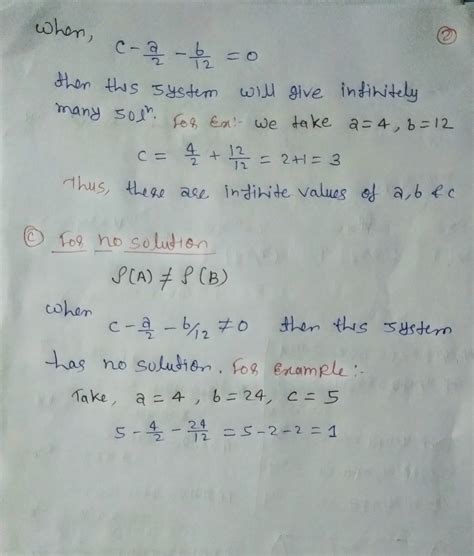 When, ②
c - a/2 - b/12 = 0
then this system will give infinitely
many solⁿ. For Ex:- we take a=4, b=12
c = 4/2 + 12/12 = 2+1 = 3
Thus, there are infinite values of a, b & c
ⓒ For no solution
ρ(A) ≠ ρ(B)
when
c - a/2 - b/12 ≠ 0 then this system
has no solution. For Example:-
Take, a = 4, b = 24, c = 5
5 - 4/2 - 24/12 = 5-2-2 = 1